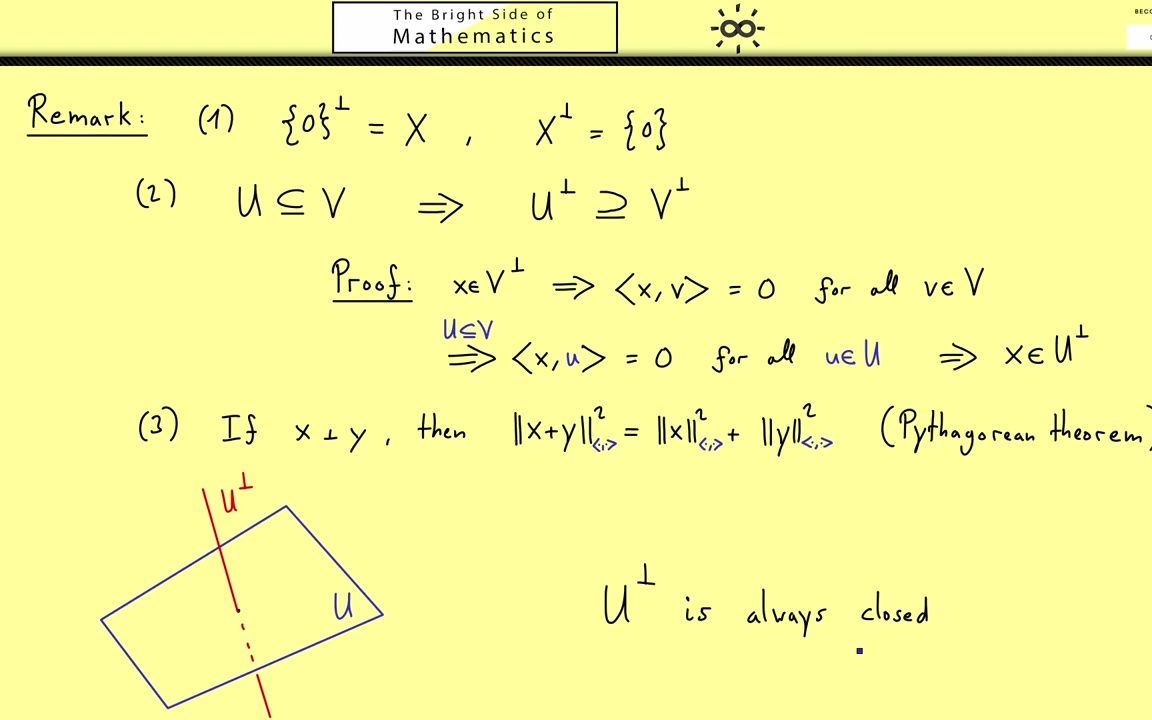 The Bright Side of
Mathematics
BECO
Remark: (1) {0}^⊥ = X , X^⊥ = {0}
(2) U ⊆ V ⟹ U^⊥ ⊇ V^⊥
Proof: x∈V^⊥ ⟹ ⟨x,v⟩ = 0 for all v∈V
U⊆V
⟹ ⟨x,u⟩ = 0 for all u∈U ⟹ x∈U^⊥
(3) If x ⊥ y , then ‖x+y‖²_<·,·> = ‖x‖²_<·,·> + ‖y‖²_<·,·> (Pythagorean theorem)
U^⊥
U
U^⊥ is always closed